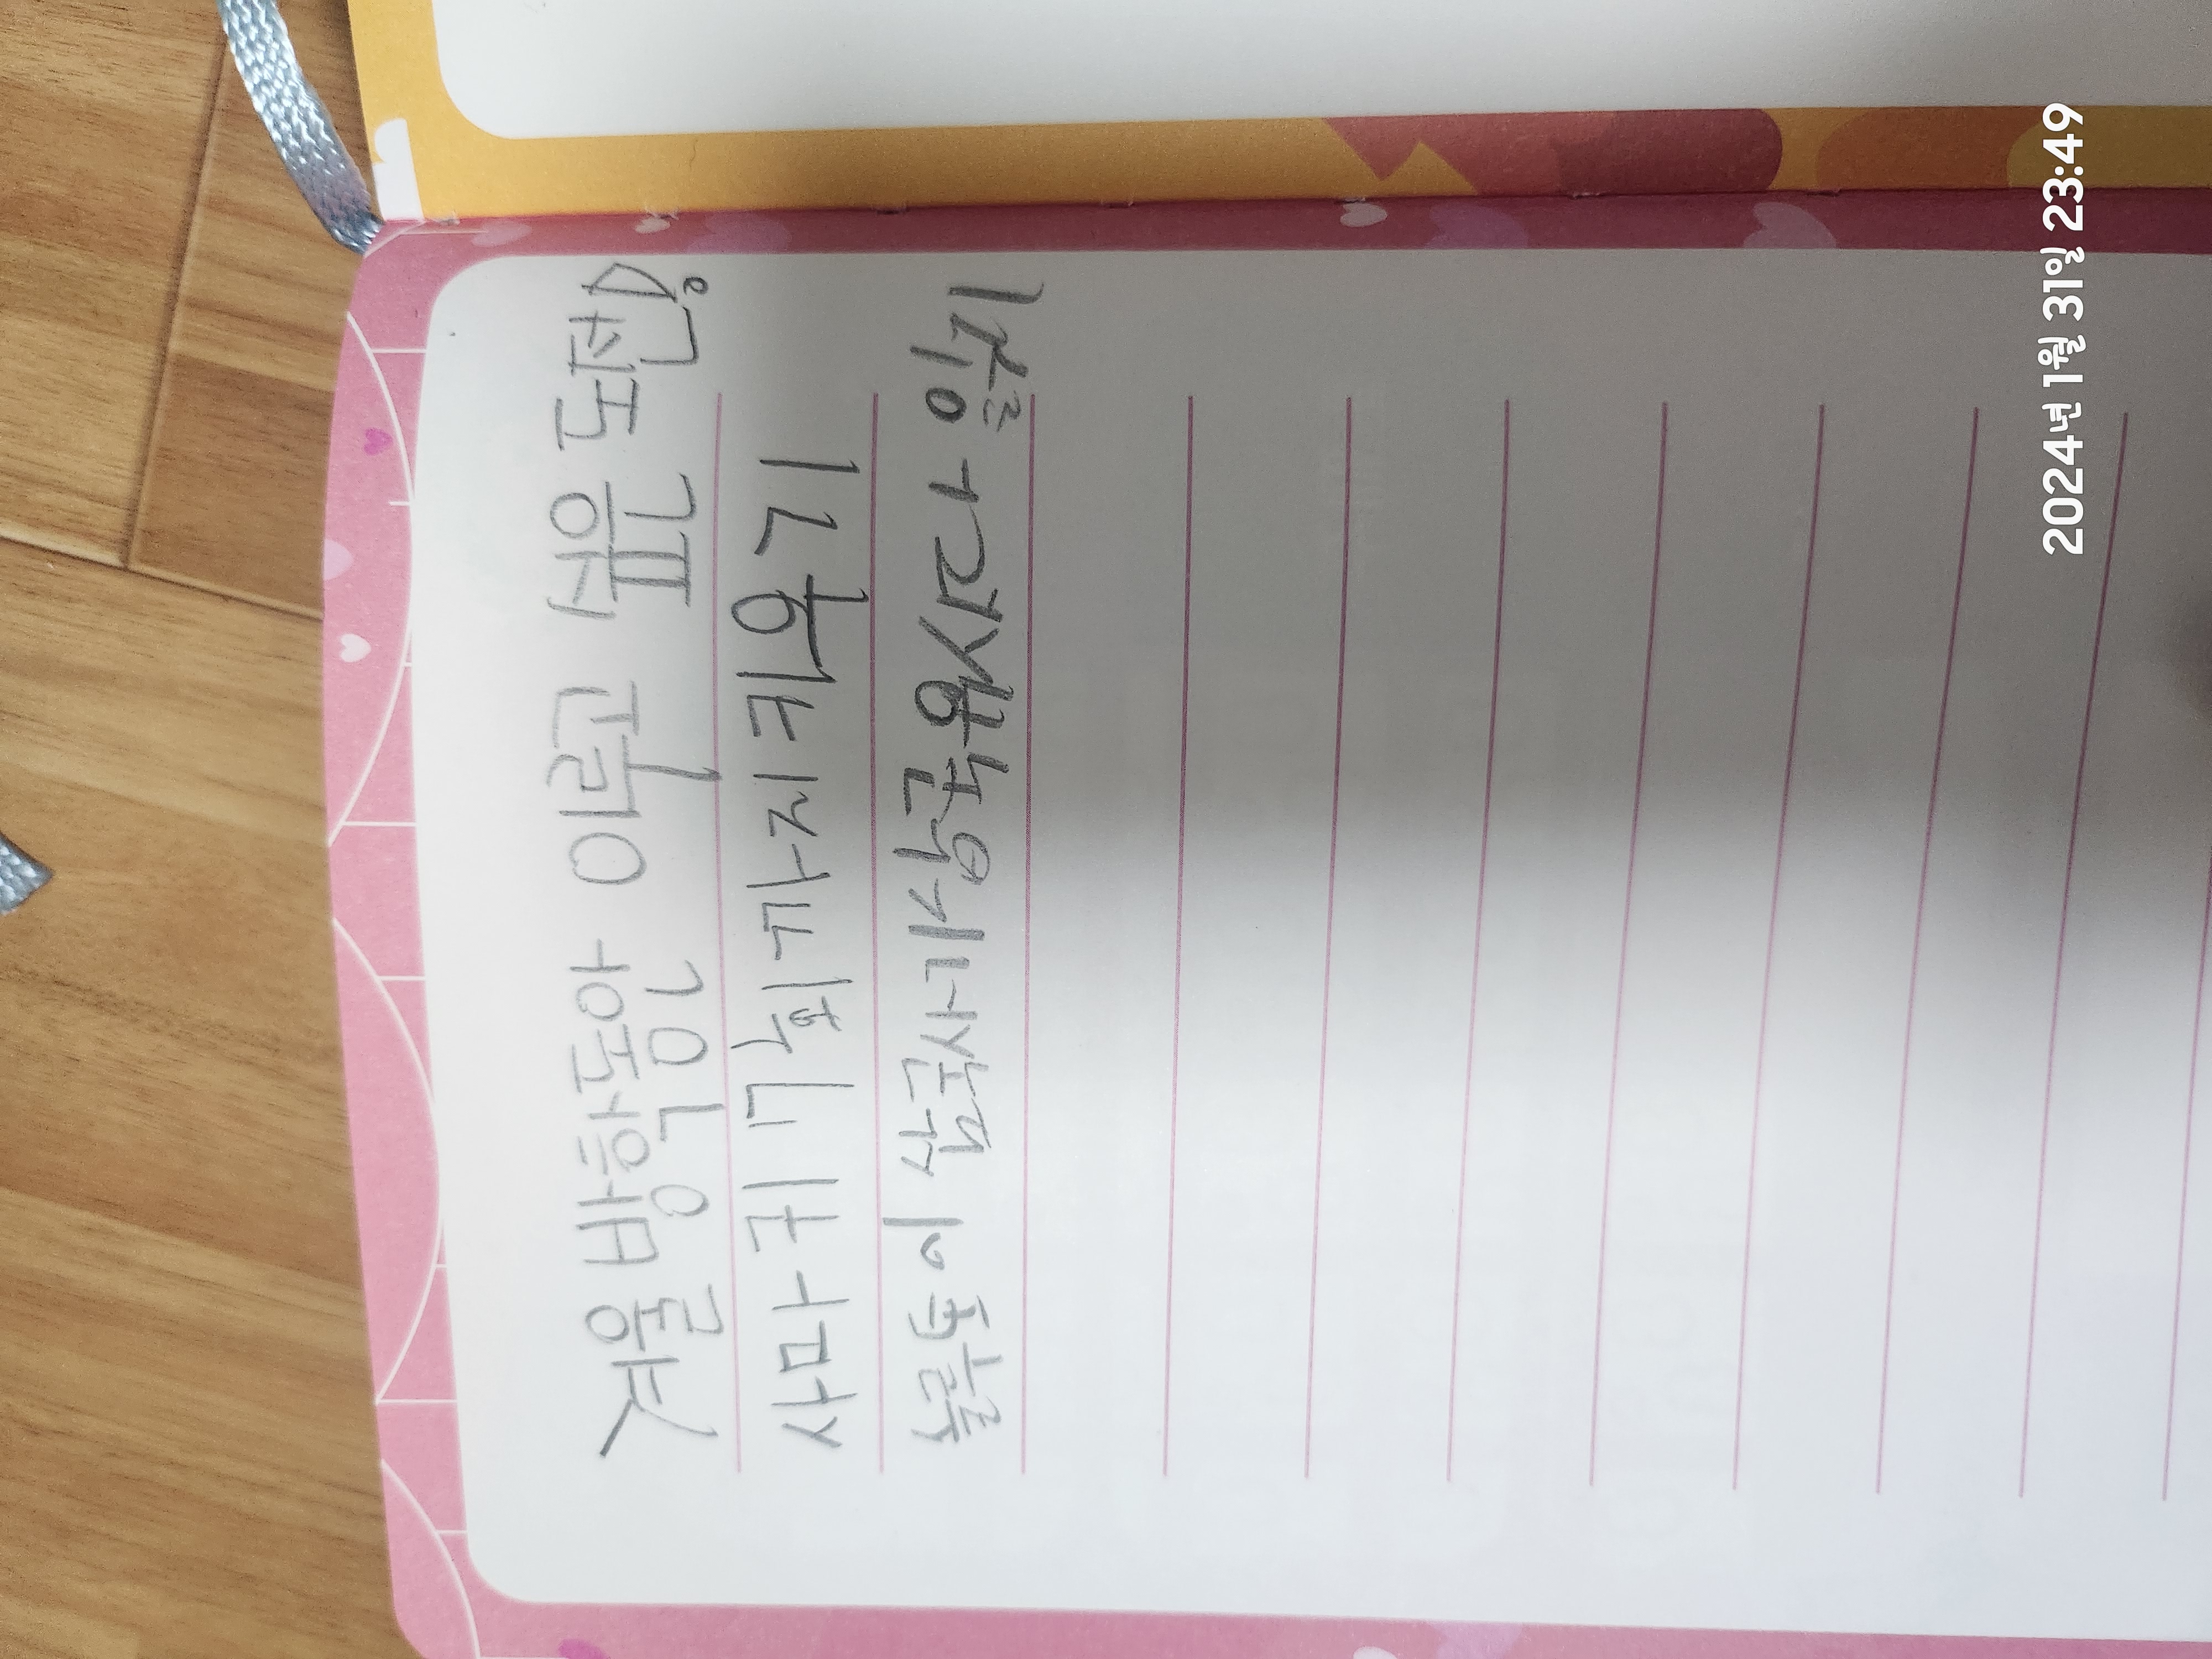 겨울 방학동안 이루고 싶은 도전!
사마귀 7회까지 키우기
솔루토이 삼국사기삼국유사다 읽기
2024년 1월 31일 23:49